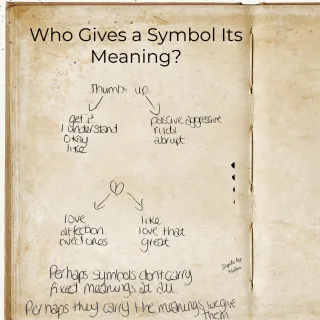 Who Gives a Symbol Its
Meaning?
Thumbs up
get it
I understand
Okay
like
passive aggressive
rude
abrupt
love
affection
loved ones
like
love that
great
Perhaps symbols don't carry
fixed meanings at all
Perhaps they carry the meanings we give
them